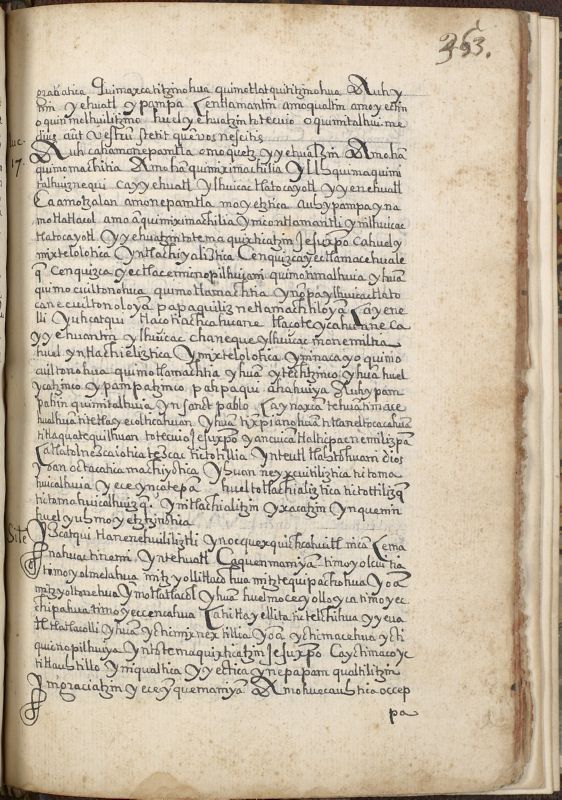 253.
gratiatica Quimaxcatitzinohua quimotlatquititzinohua Auh y
nin yehuatl ypampa Centlamantin amo qualtin amo yectin
oquinmolhuilitzino huel yehuatzin totecuio oquimitalhui. me
dius aūt vestrū stetit quē vos nescitis
Luc. 17.
Auh ca namonepantla omoquetz yyetuātzin Amo hā
quimomachitia Amo hā quimiximachilia
talhuiznequi ca yyehuatl ylhuicac tlatocayotl yyenehuatl
Ca amotzalan amonepantla moyetztica auh ypampa yn a
motlatlacol amo āquimiximachilia yn icentlamantli ymilhuicac
tlatocayotl yyehuatzin totemaquixticatzin Jesuxp̄o ca huel y
mixtelolotica yntlachiyaliztica Cenquizca yectlamachihuale
q̄ Cenquizca yectlacemicnopilhuijani quimotimalhuia yhuā
quimocuiltonohua quimotlamachtia yn ōpa ylhuicac tlato
cane cuiltonoloyā papaquiliz netlamachtiloyā Ca yene
lli yuhcatqui tlacotiachcahuane tlaçoteyccahuane ca
yyehuantin ylhuicac chaneque ylhuicac monemitia
huel yntlachieliztica ymixtelolotica yninaca yoquino
cuiltonohua quimotlamachtia yhuā ytechtzinco yhuā huel
ycatzinco ypampatzinco pahpaqui ahahuiya Auh ypam
pa hin quimitalhuia yn sanct pablo Ca ynaxcā tehuāti mace
hualhuā titetlayecolticahuan yhuā tixp̄ianohuā titlaneltocacahuā
titlaquatequilhuan totecuio Jesuxp̄o yancuica tlalticpac nemilizpā
Ca tlatolnezcaiotica tezcac ticitotillia ynteutl tlahtohuani dios
ypan octacatica machiyotica yhuan neyxcuitiliztica titoma
huicalhuia yece yncatepā huel totlachializtica ticitotilizq̄
titomahuicalhuizq̄. ymtlachializtzin yxacatzin ynquenin
huel yuhmoyetztzinotica
Sile
Yzcatqui tlanenehuiliztli ynocquexquichcahuitl nicā Cema
nahuac tinemi yntehuatl Caquenmaniyā timoyolcuitia
timoyolmelahua mitzyollitlacohua mitztequipachohua yoā
mitzyoltonehua ymotlatlacol yhuā huelmoceyolloycatimoyec
chipahua timoyeccencahua Ca titlayellita titelchihua yyeua
tl tlatlacolli yhuā yctimixnextillia yoā yctimacehua ycti
quicnopilhuiya yntotemaquixtiatzin Jesuxp̄o Ca yctimacoyc
titlauhtillo ynıqualtica yyectica ynepapam qualtilitzin
ymograciatzin yece yquemaniyā Amo huecauhtica occep
pa